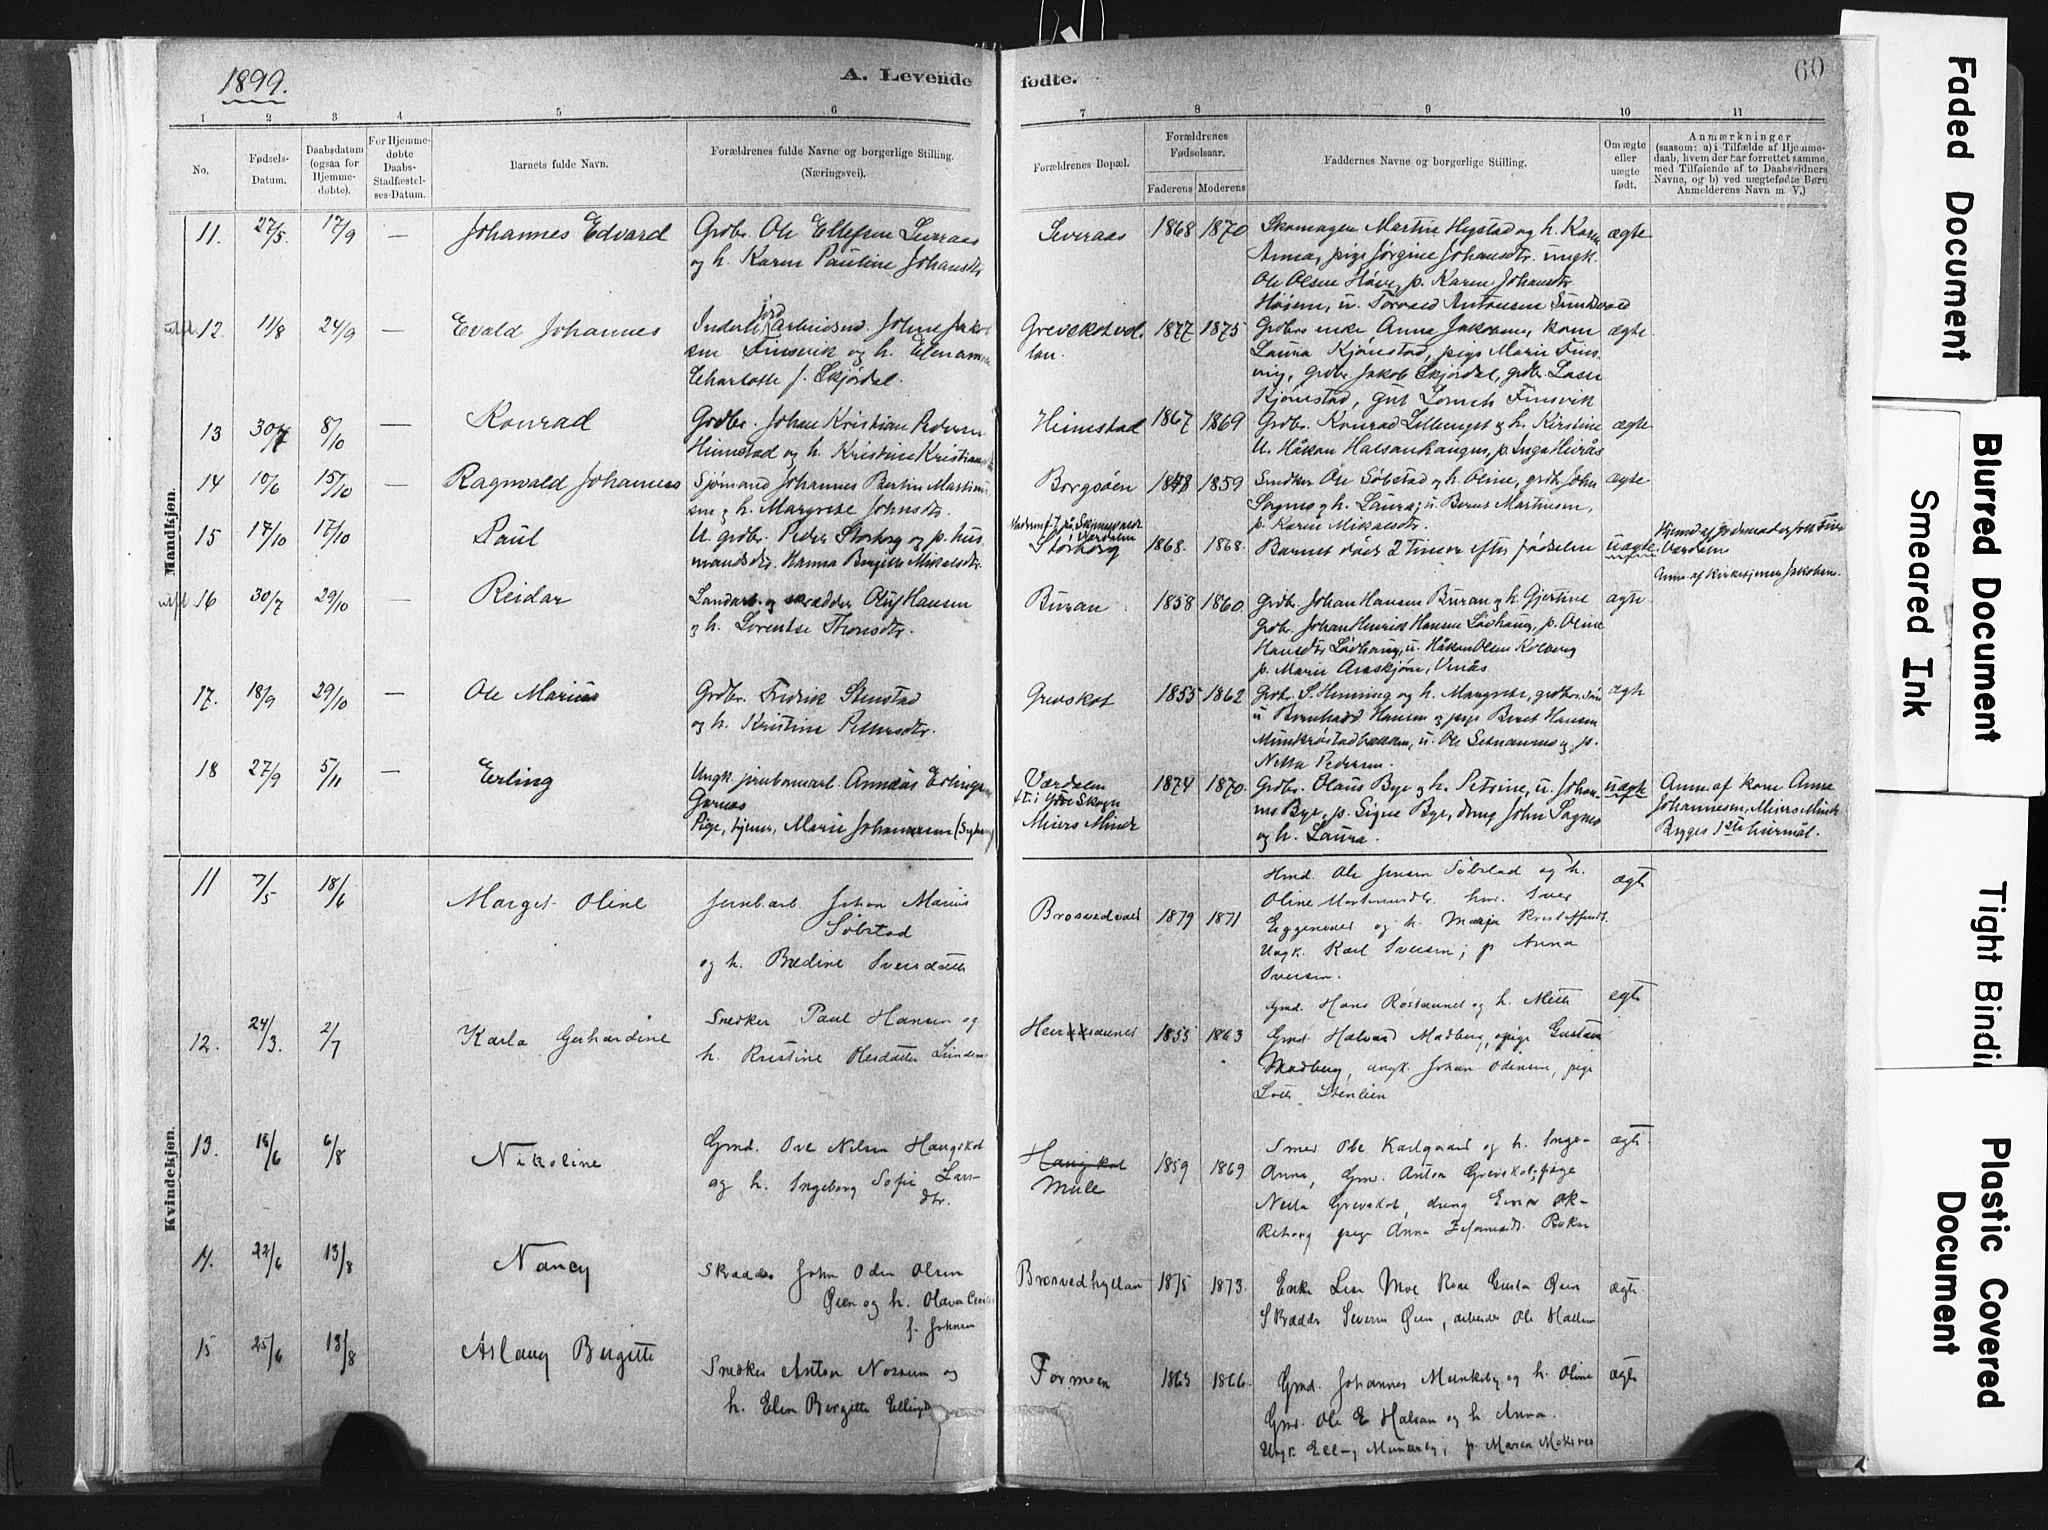 1899.
A. Levende
fødte.
60
1 2 3 4 5 6 7 8 9 10 11
No.
Fødsels-Datum.
Daabsdatum (ogsaa for Hjemme-døbte).
For Hjemme-døbte Daabs-Stadfæstel-ses-Datum.
Barnets fulde Navn.
Forældrenes fulde Navne og borgerlige Stilling. (Næringsvei).
Forældrenes Bopæl.
Forældrenes Fødselsaar.
Faderens Moderens
Faddernes Navne og borgerlige Stilling.
Om ægte eller uægte født.
Anmærkninger (saasom: a) i Tilfælde af Hjemme-daab, hvem der har forrettet samme, med Tilføiende af to Daabsvidners Navne, og b) ved uægtefødte Børn Anmelderens Navn m. V.)
Mandkjøn.
11. 27/5. 17/9 — Johannes Edvard
Grdbr. Ole Ellefsen Leveraas
og h. Karen Pauline Johansdtr
Leveraas 1868 1870
Skomager Martin Hystad og h. Karen
Anna, pige Jørgine Johansdtr. ungk.
Ole Olsen Høve, p. Karen Johansdtr
Høiem, u. Torvald Antonsen
ægte
12. 11/8 24/9 — Evald Johannes
Inderk jord arbeidsmd. Johan Jakob
sen Finsvik og h. Elenanna
Charlotte f. Skjørdal.
1877 1875
Grdbrs enke Anna Jakobsen, kone
Laura Kjønstad, pige Marie Fins-
vig, grdbr Jakob Skjørdal, grdbr. Lasse
Kjønstad, gut Lornts Finsvik
ægte
13 30/7 8/10 — Konrad
Grdbr. Johan Kristian Pedersen
Heimstad og h. Kristine Kristians
Heimstad 1867 1869
Grdbr. Konrad og h. Kirstine
U. Håkon Halsanhaugen, p. Inga Heirås
ægte
14 10/6 15/10 — Ragnvald Johannes
Sjømand Johannes Bertin Martin
sen og h. Margrete Johnsdtr.
Borgsøen 1848 1859
Snedker Ole Søbstad og h. Oline, grdbr. John
Sagnes og h. Laura; u. Bernt Martinsen,
p. Karen Mikalsdtr.
ægte
15 17/10 17/10 — Paul
U. grdbr. Peder Storborg og p. hus
mandsdtr. Hanna Birgitte Mikalsdtr.
Storborg 1868. 1868.
Barnet døde 2 Timer efter fødselen
uægte.
Værdalen
Anm. af kirketjener Jakobsen.
16 30/7 29/10 — Reidar
Landarb. og skrædder Oluf Hansen
og h. Lorentse Thomsdtr.
Buran 1858 1860.
Grdbr. Johan Hansen Buran og h. Gjertine
Grdbr. Johan Henrik Hansen Lødhaug, p. Oline
Hansdtr Lødhaug, u. Håkon Olsen Kolberg
p. Marie Araskjøn, Vinås
ægte
17. 18/9 29/10 — Ole Marius
Grdbr. Fredrik Stenstad
og h. Kristine Pettersdtr.
Grevskot 1855 1862
Grdbr. S. Henning og h. Margrete, grdbr. søn
u Bernhard Hansen og pige Beret Hansen
u. Ole og p.
Netta Pedersen.
ægte
18 27/9 5/11 — Erling
Ungk. jernbanearb. Annæus Erlingsen
Garnes
Pige, tjener, Marie Johannesen
Værdalen
fti Ytre Skogn
Meiers Minde
1874 1870.
Grdbr. Olaus Bye og h. Petrine, u. Johan-
nes Bye, p. Signe Bye, dreng John Sagnes
og h. Laura.
uægte
Anm. af kone Anna
Johannesen, Meiers Minde
Kvindekjøn.
11 7/5 18/6 Marget Oline
Jernb.arb. Johan Marius
Søbstad
og h. Bredine Sversdatter
Brosvedvald 1879 1871
Hmd. Ole Jensen Søbstad og h.
Oline Mortensdtr. hmd. Sver
Eggenvald og h. Marja Kristoffersdt.
Ungk. Karl Sversen; p. Anna
Sversen.
ægte
12. 24/3. 2/7 Karla Gerhardine
Snedker Paul Hansen og
h. Kristine Olesdatter
1855 1863
Grmd. Hans Røstaunet og h. Mette
Grmd. Halvard Madberg, pige Gustava
Madberg, ungk. Johan Odinsen, pige
Stenlien
ægte
13. 18/6 6/8 Nikoline
Grmd. Ove Nilsen Haugskot
og h. Ingeborg Sofie Lars-
dtr.
Haugskot
Mule
1859 1869
Smed Ole Karlgaard og h. Inge-
Anna, Grm. Anton Grevskot, pige
Netta Grevskot, dreng Einar
pige Anna
ægte
14. 22/6 13/8 Nancy
Skrædder John Odin Olsen
Øien og h. Olava
f. Johnsen
Brosvedhyllan 1875 1873.
Enke Lise Moe Kone Gusta Øien
Skrædder Severin Øien, arbeider Ole Hallem
ægte
15 25/6 13/8 Aslaug Birgitte
Snedker Anton Nossum og
h. Elen Birgitte Ellingsd
Formoen 1863 1866.
Grmd. Johannes Munkeby og h. Oline
Grmd. Ole E Halsan og h. Anna.
Ungk. Elling Munkeby; p. Maren Moksnes
ægte
Faded Document
Blurred Document
Smeared Ink
Tight Bindi
Plastic Covered
Document